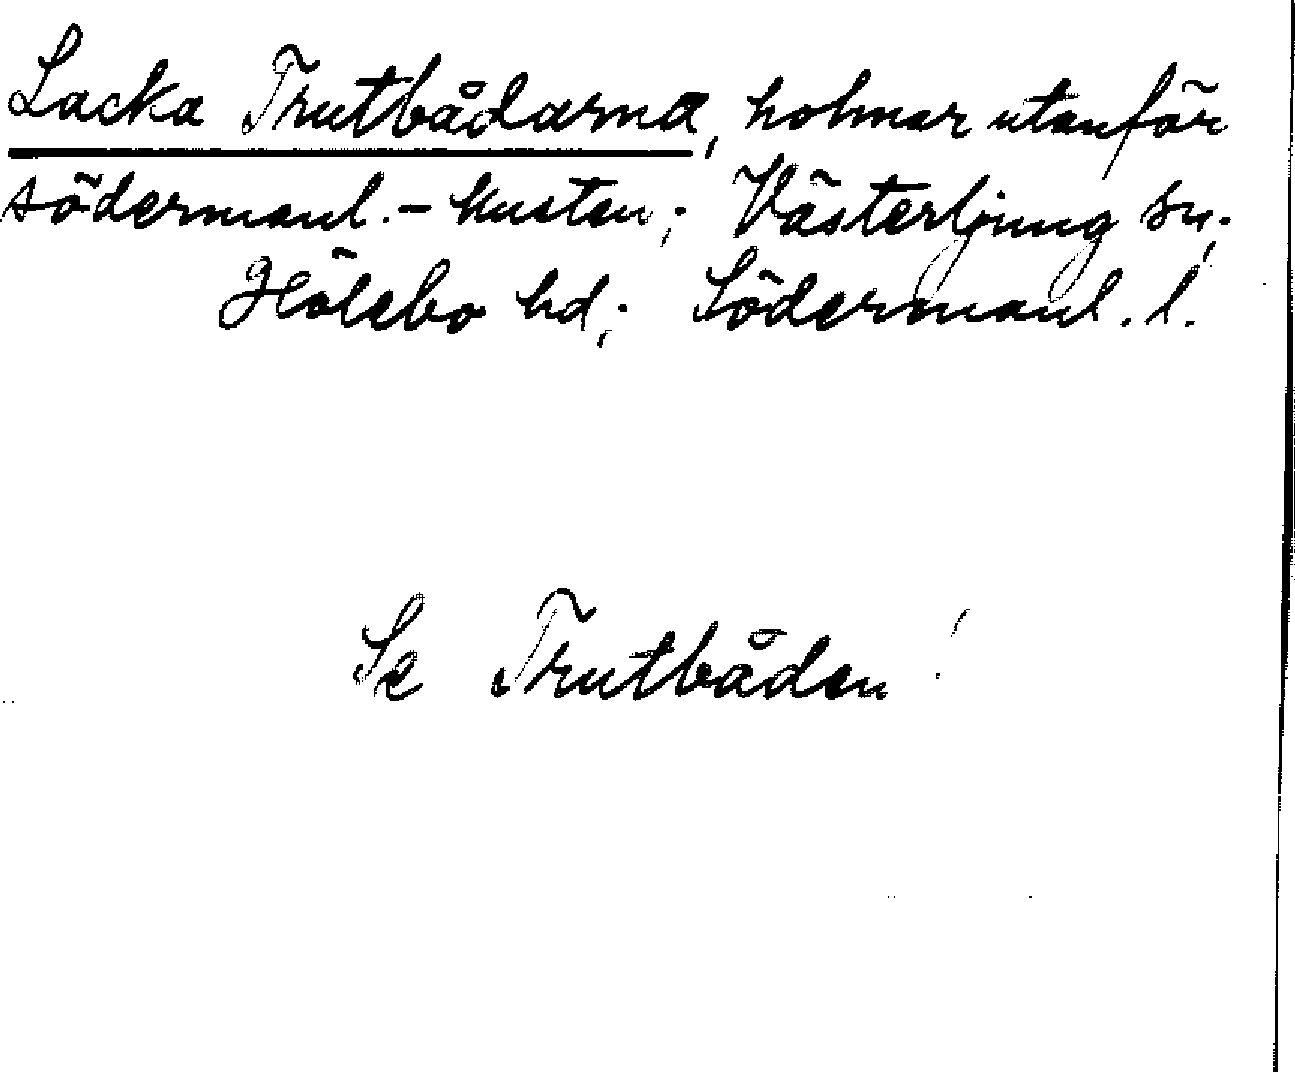 Lacka Trutbådarna, holmar utanför
södermanl.-kusten; Västerljung sn;
Hölebo hd; Södermanl. l.
Se Trutbåden!